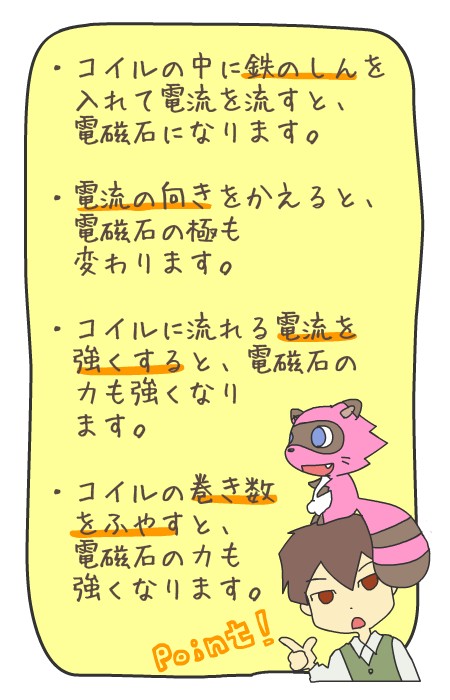 ・コイルの中に鉄のしんを
入れて電流を流すと、
電磁石になります。
・電流の向きをかえると、
電磁石の極も
変わります。
・コイルに流れる電流を
強くすると、電磁石の
力も強くなり
ます。
・コイルの巻き数
をふやすと、
電磁石の力も
強くなります。
Point!